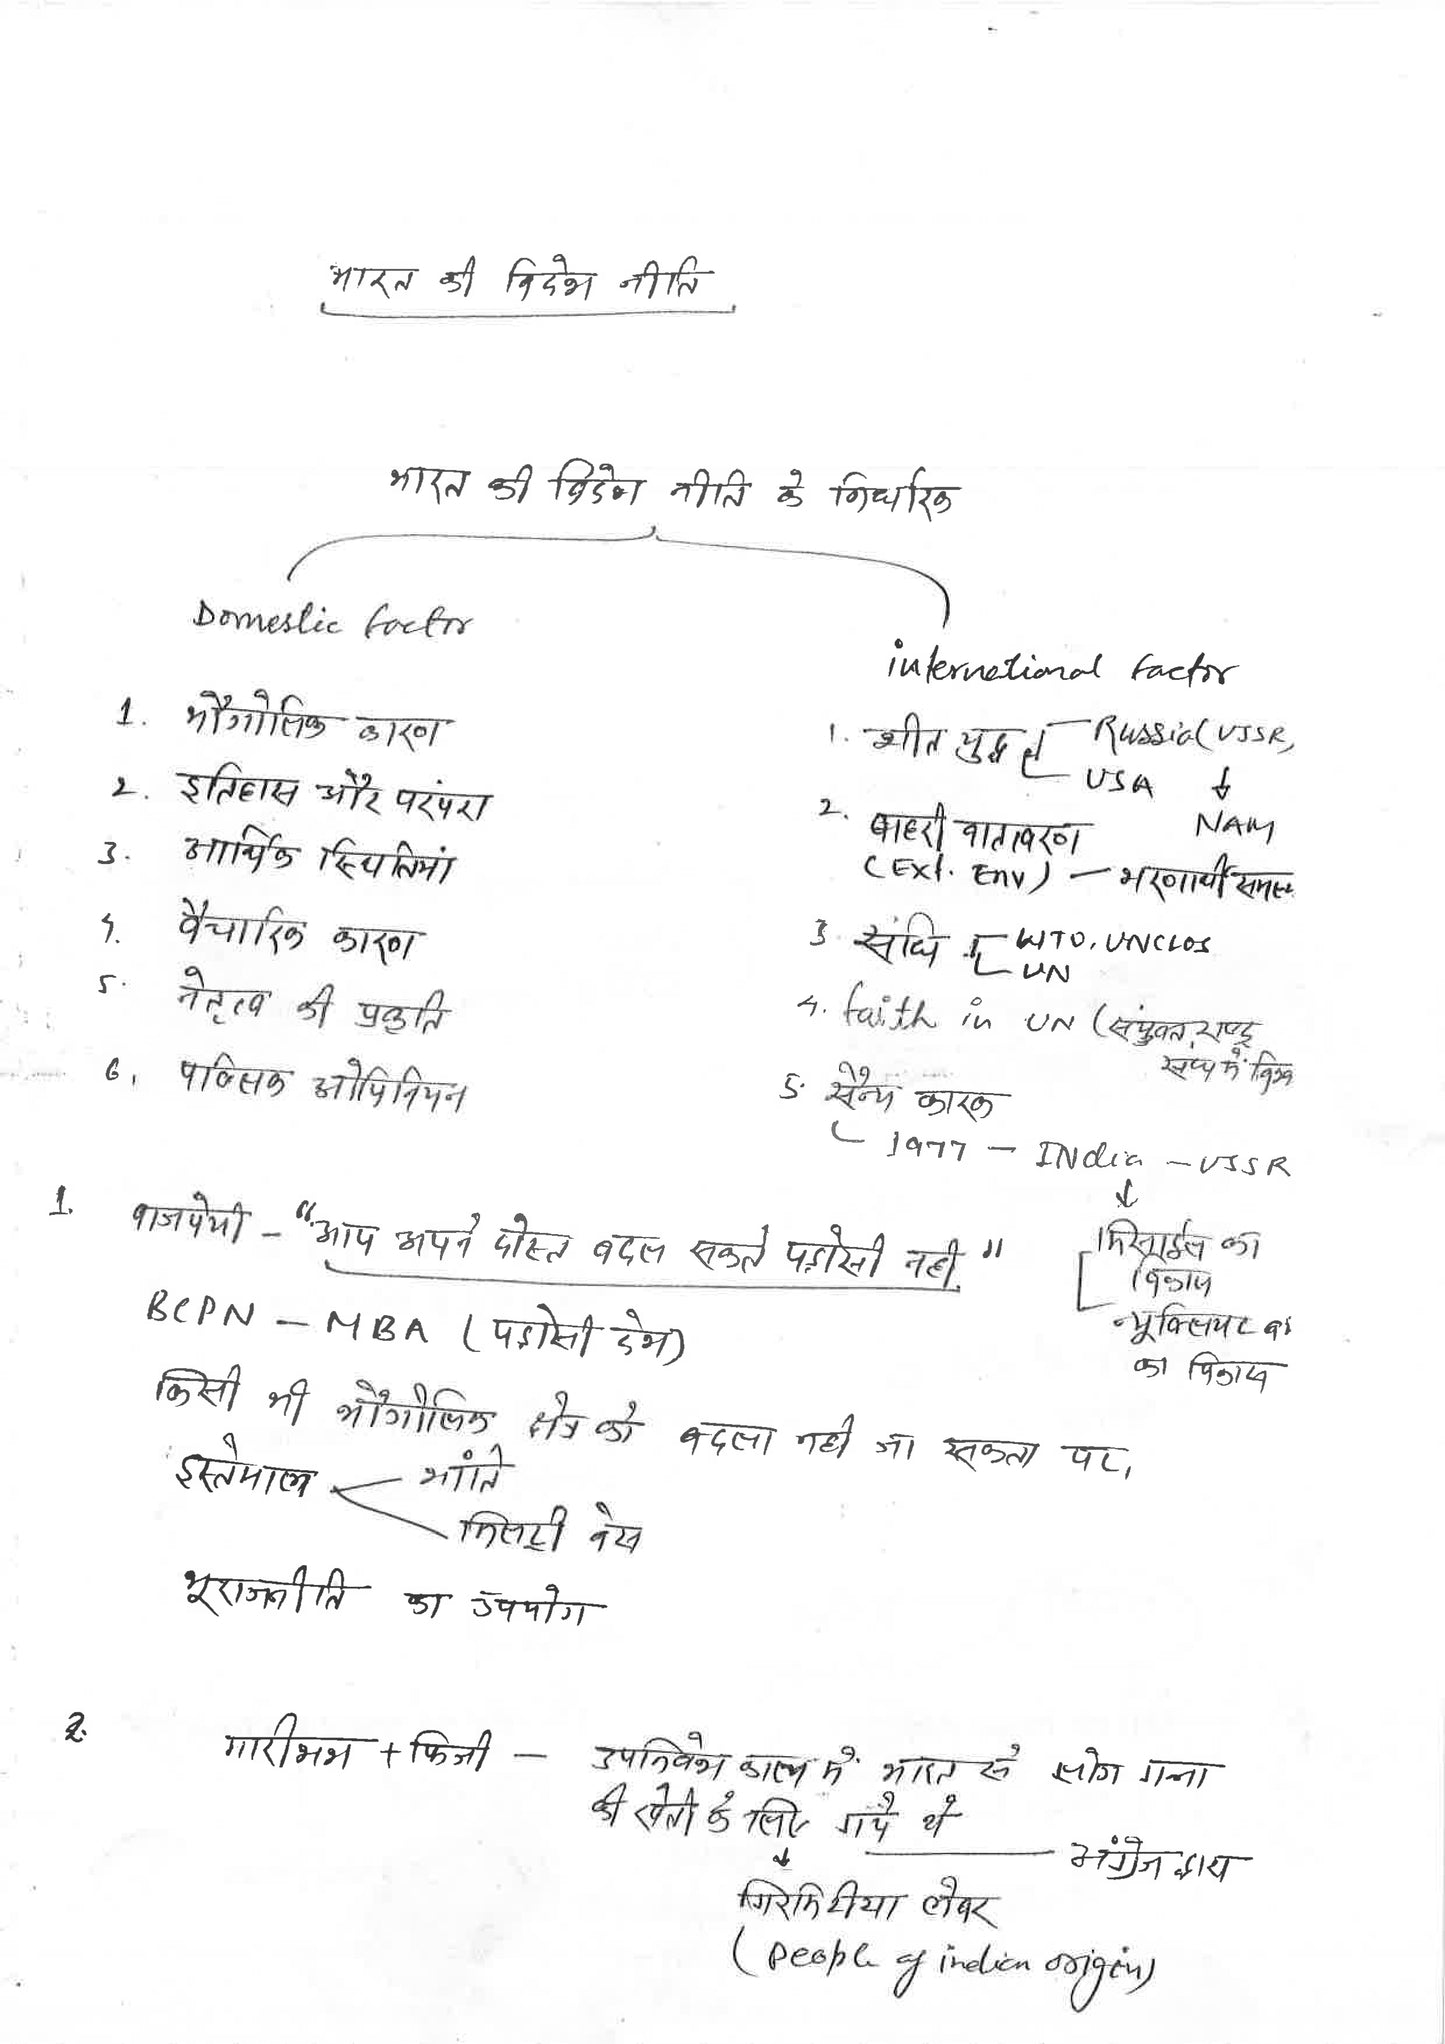 भारत की विदेश नीति
भारत की विदेश नीति के निर्धारक
Domestic factor
international factor
1. भौगोलिक कारण
2. इतिहास और परंपरा
3. आर्थिक स्थितियां
4. वैचारिक कारण
5. नेतृत्व की प्रकृति
6. पब्लिक ओपिनियन
1. शीत युद्ध Russia (USSR,
USA ↓
NAM
2. बाहरी वातावरण
(Ext. Env) — शरणार्थी
3. संधि WTO, UNCLOS
UN
4. faith in UN (संयुक्त राष्ट्र
संघ में
5. सैन्य कारक
1977 — INdia — USSR
↓
मिसाईल का
विकास
न्यूक्लियर
का विकास
1. वाजपेयी — "आप अपने दोस्त बदल सकते पड़ोसी नहीं."
BCPN — MBA (पड़ोसी देश)
किसी भी भौगोलिक क्षेत्र को बदला नहीं जा सकता पर,
इस्तेमाल शांति
मिलट्री बेस
भूराजनीति का उपयोग
2. मारीशश + फिजी — उपनिवेश काल में भारत से लोग गन्ना
की खेती के लिए गये थे — अंग्रेज द्वारा
↓
गिरमिटीया लेबर
(People of indian origin)